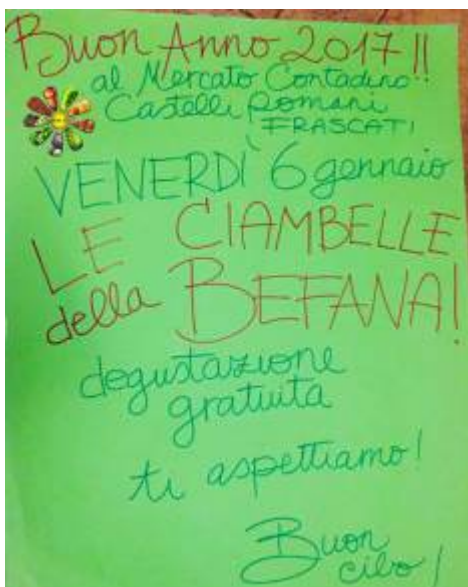 Buon Anno 2017!!
al Mercato Contadino!!
Castelli Romani
FRASCATI
VENERDÌ 6 gennaio
LE CIAMBELLE
della BEFANA!
degustazione
gratuita
ti aspettiamo!
Buon
cibo!